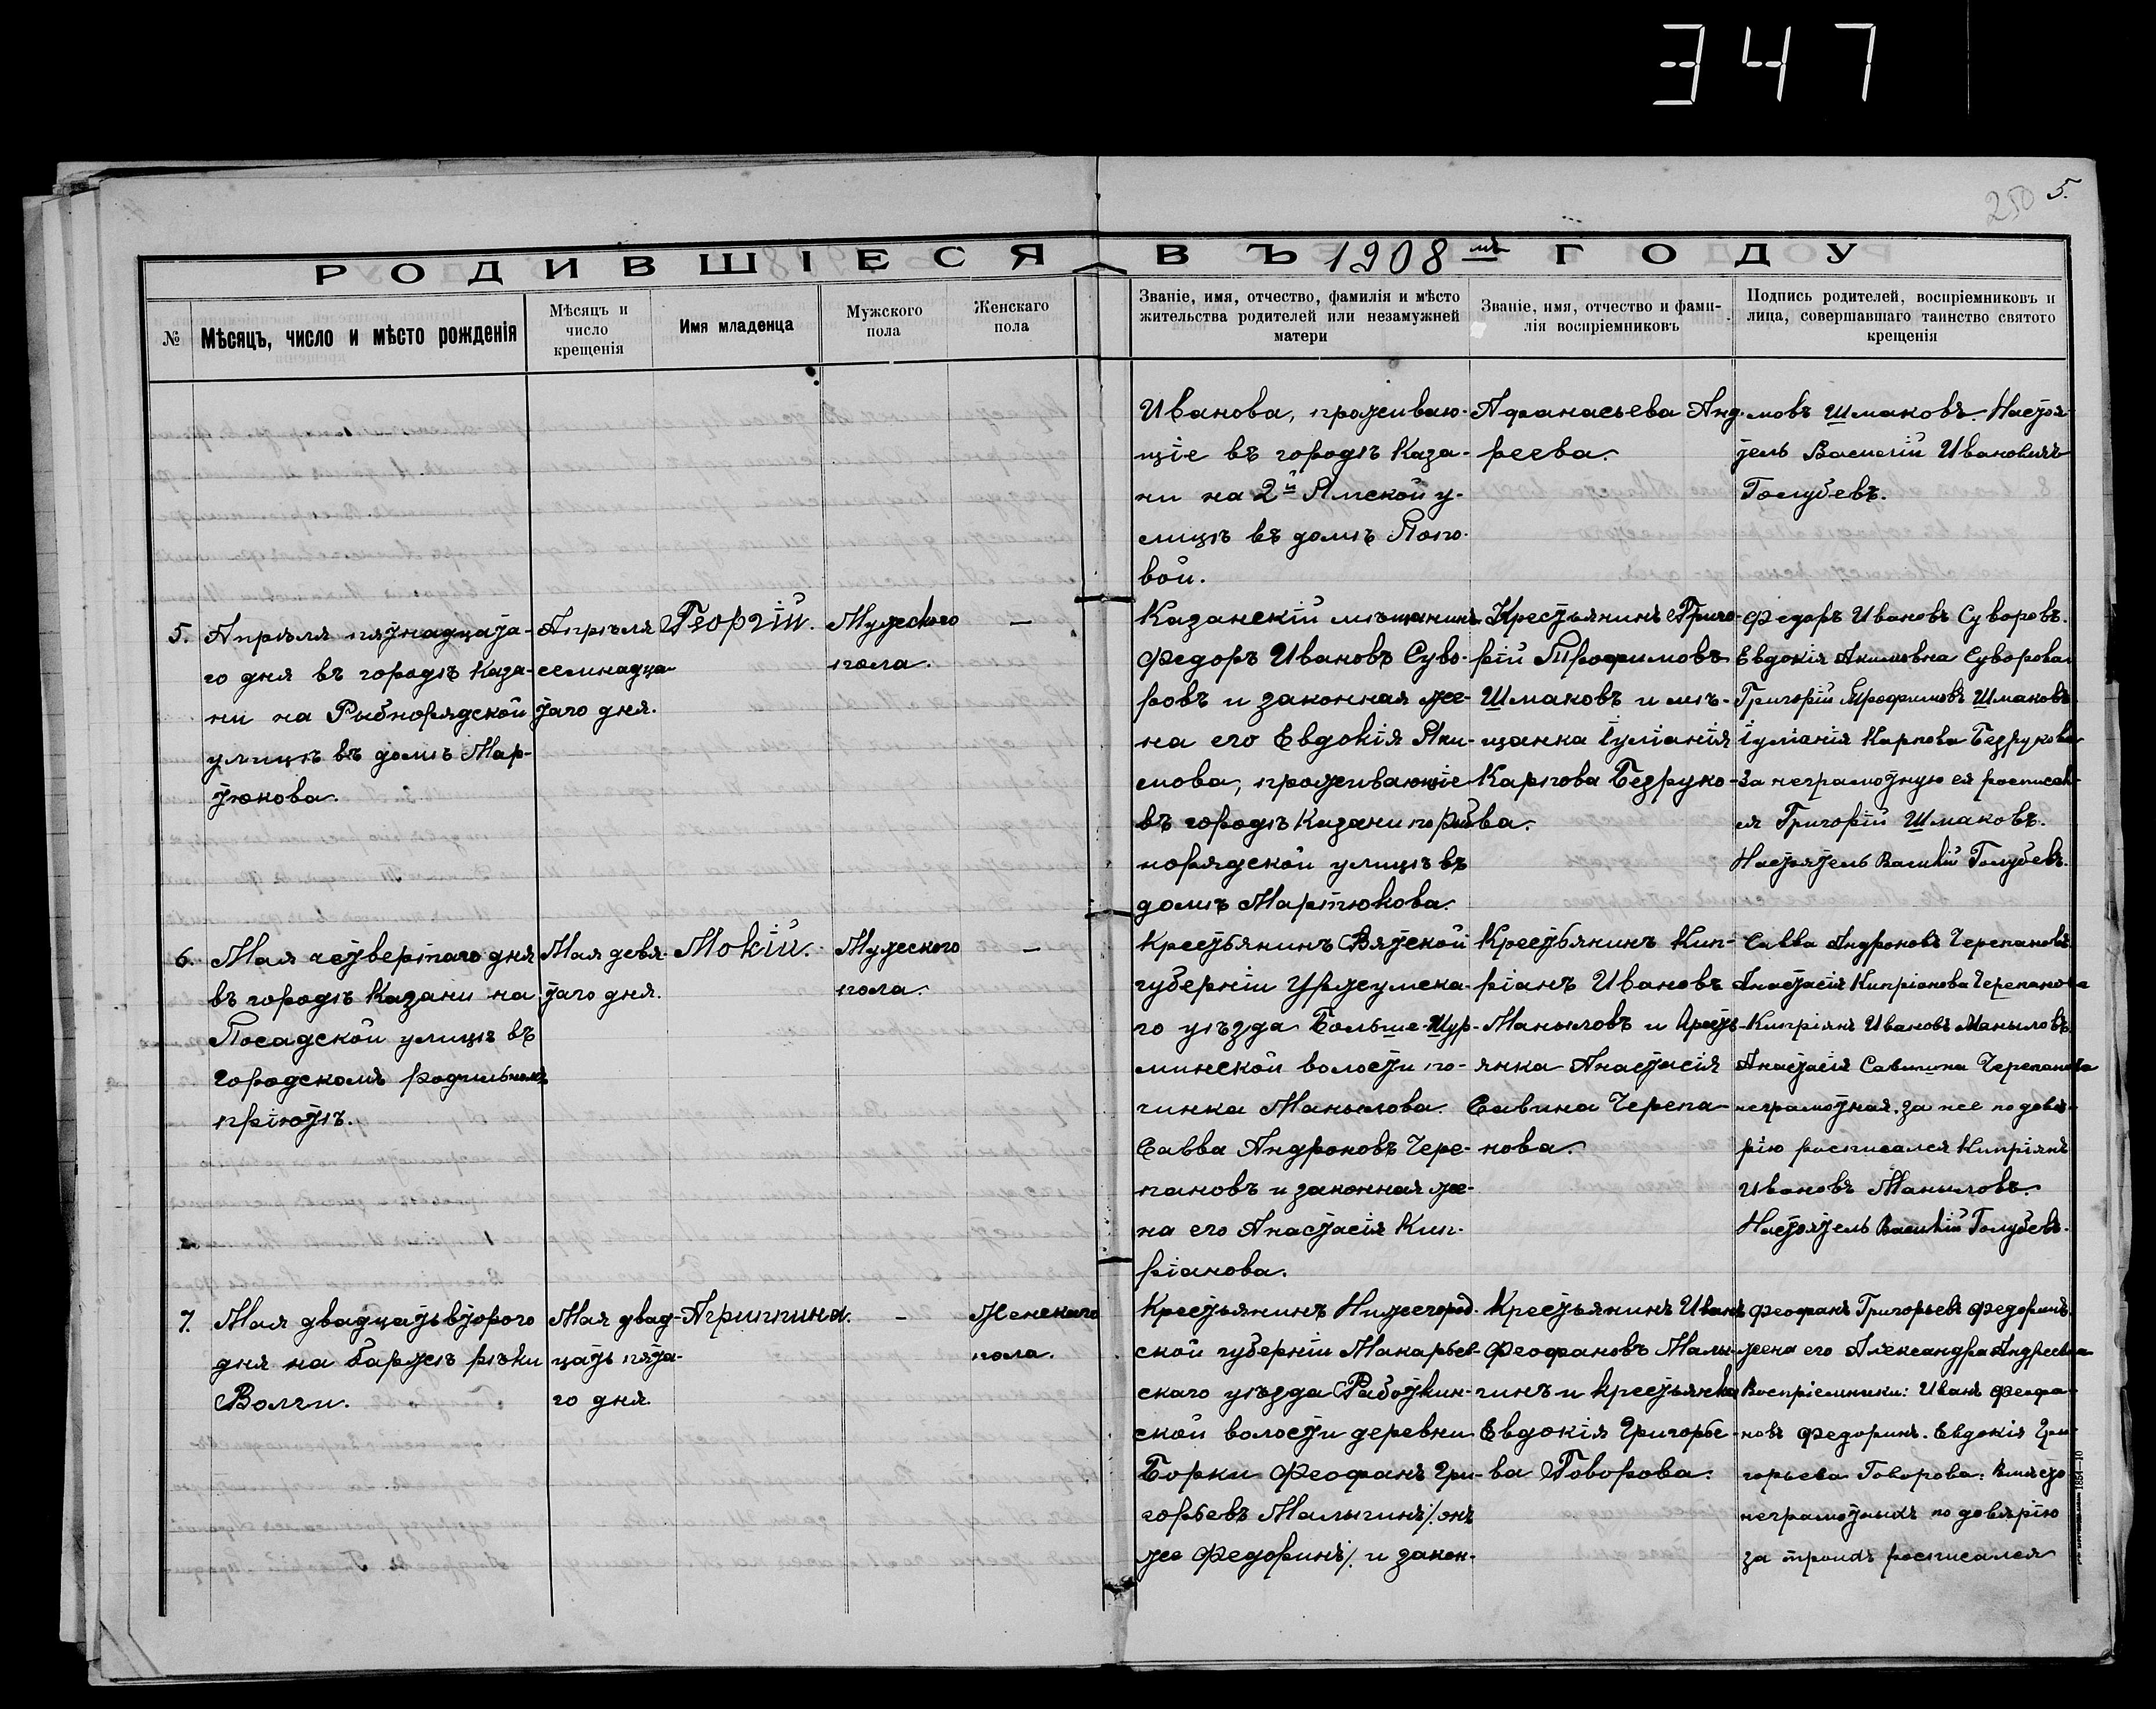 347
250 5.
РОДИВШІЕСЯ ВЪ 1908мъ ГОДУ
№
Мѣсяцъ, число и мѣсто рожденія
Мѣсяцъ и
число
крещенія
Имя младенца
Мужского
пола
Женскаго
пола
Званіе, имя, отчество, фамилія и мѣсто
жительства родителей или незамужней
матери
Званіе, имя, отчество и фами-
лія воспріемниковъ
Подпись родителей, воспріемниковъ и
лица, совершавшаго таинство святого
крещенія
Иванова, проживаю-
щіе въ городѣ Каза-
ни на 2й Ямской у-
лицѣ въ домѣ Попо-
вой.
Афанасьева Анд-
реева.
мовъ Шмаковъ. Настоя-
тель Василій Ивановичъ
Голубевъ.
5.
Апрѣля пятнадцата-
го дня въ городѣ Каза-
ни на Рыбнорядской
улицѣ въ домѣ Мар-
тюкова.
Апрѣля
семнадца-
таго дня.
Георгій.
Мужского
пола.
—
Казанскій мѣщанинъ
Федоръ Ивановъ Суво-
ровъ и законная же-
на его Евдокія Яки-
мова, проживающіе
въ городѣ Казани по Рыб-
норядской улицѣ въ
домѣ Мартюкова.
Крестьянинъ Григо-
рій Трофимовъ
Шмаковъ и мѣ-
щанка Іуліанія
Карпова Безруко-
ва.
Федоръ Ивановъ Суворовъ.
Евдокія Акимовна Суворова
Григорій Трофимовъ Шмаковъ
Іуліанія Карпова Безрукова
За неграмотную ея росписал-
ся Григорій Шмаковъ.
Настоятель Василій Голубевъ.
6.
Мая четвертаго дня
въ городѣ Казани на
Посадской улицѣ въ
городскомъ родильномъ
пріютѣ.
Мая девя-
таго дня.
Мокій.
Мужеского
пола.
—
Крестьянинъ Вятской
губерніи Уржумска-
го уѣзда Больше-Шур-
минской волости по-
чинка Манылова
Савва Андроновъ Чере-
пановъ и законная же-
на его Анастасія Кип-
ріанова.
Крестьянинъ Кип-
ріанъ Ивановъ
Маныловъ и крестъ-
янка Анастасія
Савина Черепа-
нова.
Савва Андроновъ Черепановъ
Анастасія Кипріонова Черепанова
Кипріянъ Ивановъ Маныловъ
Анастасія Савишна Черепанова
неграмотная. за нее по довѣ-
рію росписался Кипріянъ
Ивановъ Маныловъ.
Настоятель Василій Голубевъ.
7.
Мая двадцать второго
дня на баржѣ рѣки
Волги.
Мая двад-
цать пята-
го дня.
Агриппина.
-
Женскаго
пола.
Крестьянинъ Нижегород-
ской губерніи Макарьев-
скаго уѣзда Работкин-
ской волости деревни
Борки Феофанъ Гри-
горьевъ Малыгинъ/. онъ
же Федоринъ/. и закон-
Крестьянинъ Иванъ
Феофановъ Малы-
гинъ и крестьянка
Евдокія Григорье-
ва Говорова.
Феофанъ Григорьевъ Федоринъ.
жена его Александра Андреевна
Воспріемники: Иванъ Феофа-
новъ Федоринъ. Евдокія Гри-
горьева Говорова:
неграмотныхъ по довѣрію
за троихъ росписался